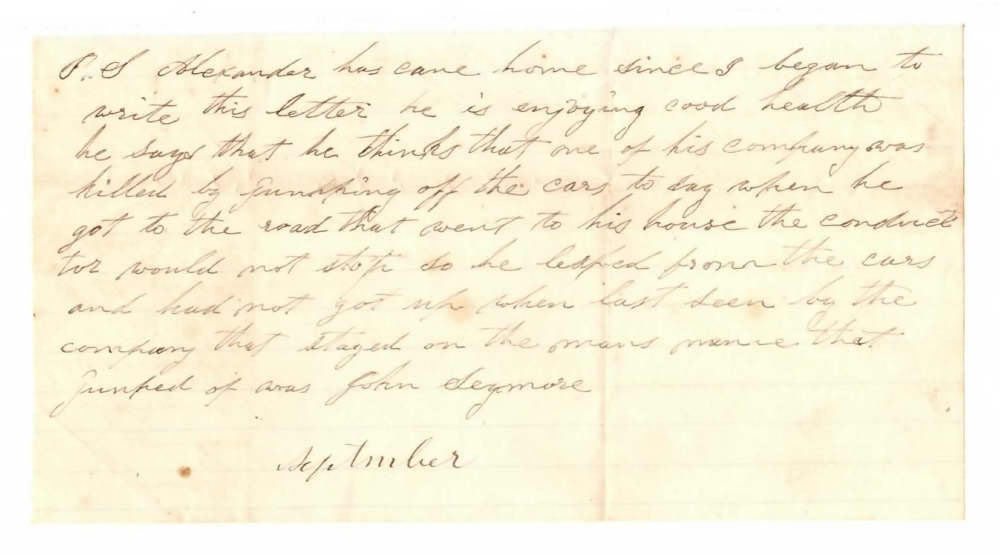 P. S Alexander has came home since I began to
write this letter he is enjoying good health
he says that he thinks that one of his company was
killed by jumping off the cars to day when he
got to the road that went to his house the conduct
tor would not stop so he leaped from the cars
and had not got up when last seen by the
company that stayed on the mans name that
junped of was John Seymore
September